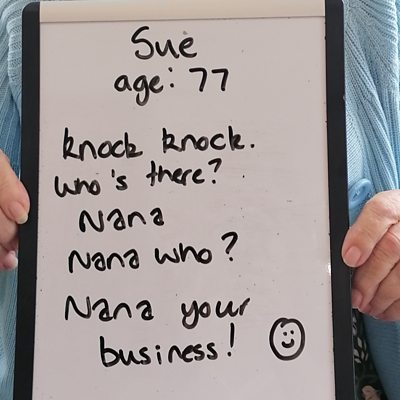 Sue
age: 77
knock knock.
who's there?
Nana
Nana who?
Nana your
business!